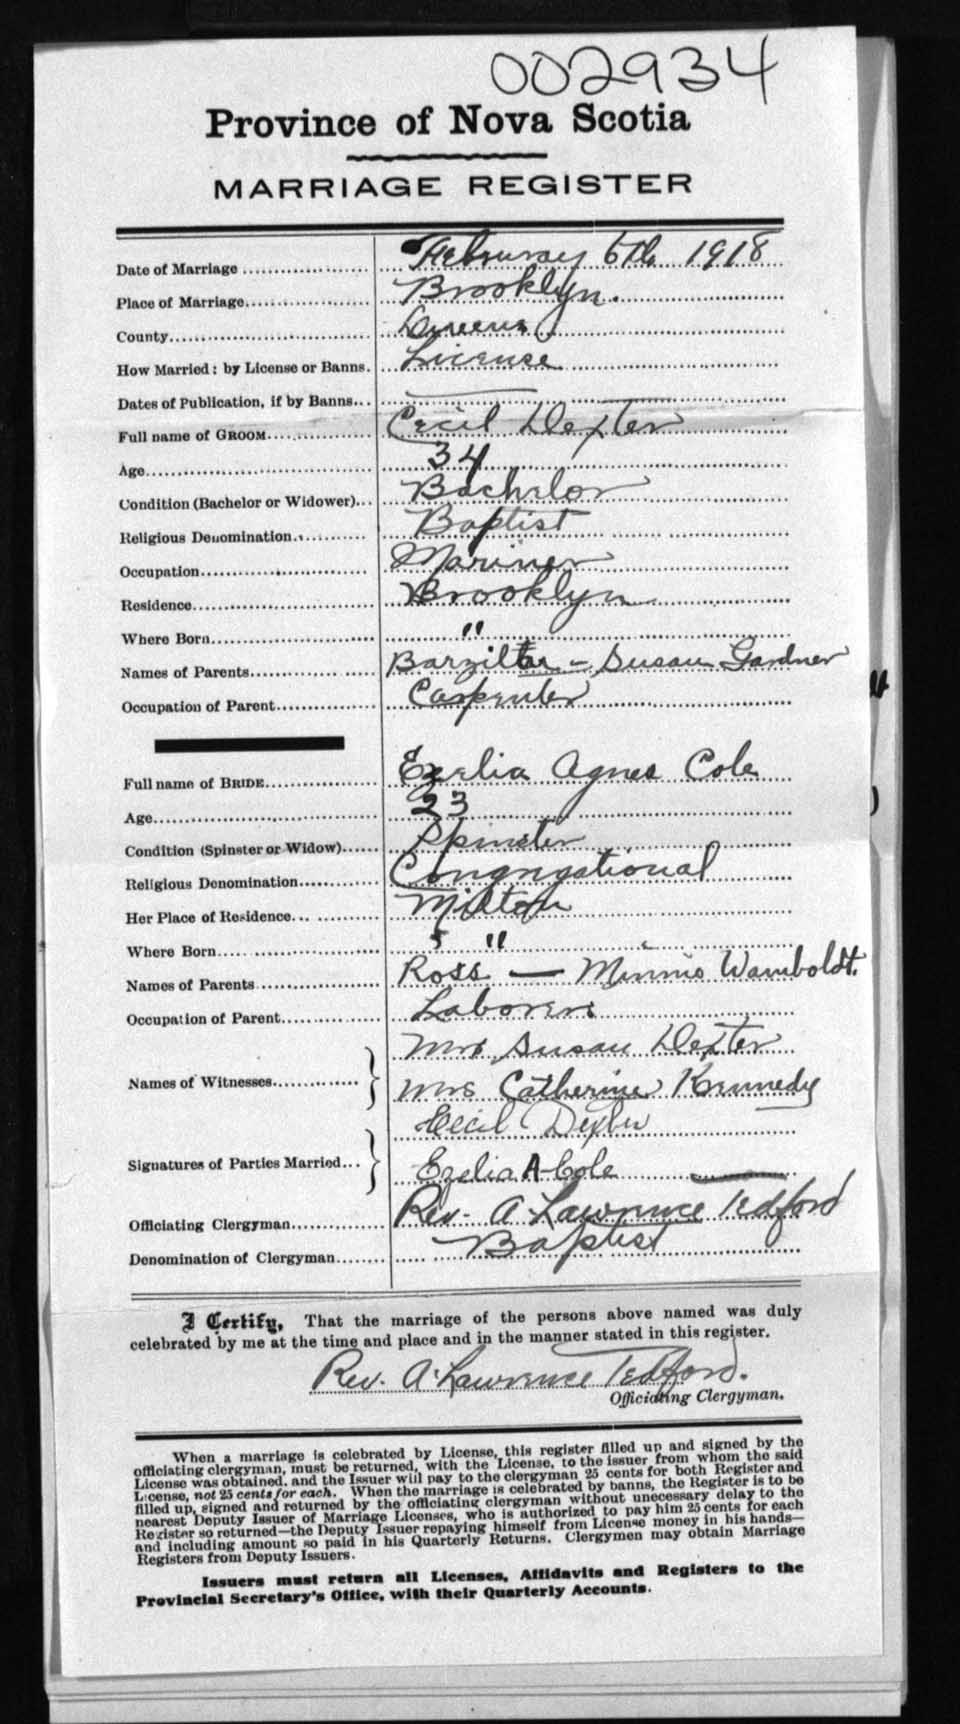 002934
Province of Nova Scotia
MARRIAGE REGISTER
Date of Marriage .................... February 6th 1918
Place of Marriage.................... Brooklyn.
County.................... Queens
How Married: by License or Banns. License
Dates of Publication, if by Banns...
Full name of GROOM.................... Cecil Dexter
Age.................... 34
Condition (Bachelor or Widower)... Bachelor
Religious Denomination.................... Baptist
Occupation.................... Mariner
Residence.................... Brooklyn
Where Born.................... "
Names of Parents.................... – Susan Gardner
Occupation of Parent.................... Carpenter
Full name of BRIDE.................... Ezelia Agnes Cole
Age.................... 23
Condition (Spinster or Widow)...... Spinster
Religious Denomination............ Congregational
Her Place of Residence... Milton
Where Born.................... "
Names of Parents.................... Ross — Minnie Wamboldt.
Occupation of Parent.................... Laborer
Mrs Susan Dexter
Names of Witnesses.............. } Mrs Catherine Kennedy
Cecil Dexter
Signatures of Parties Married... } Ezelia A Cole
Officiating Clergyman.............. Rev. A Lawrence Tedford
Denomination of Clergyman........ Baptist
I Certify, That the marriage of the persons above named was duly
celebrated by me at the time and place and in the manner stated in this register.
Rev. A. Lawrence Tedford.
Officiating Clergyman.
When a marriage is celebrated by License, this register filled up and signed by the
officiating clergyman, must be returned, with the License, to the issuer from whom the said
License was obtained, and the Issuer will pay to the clergyman 25 cents for both Register and
License, not 25 cents for each. When the marriage is celebrated by banns, the Register is to be
filled up, signed and returned by the officiating clergyman without unecessary delay to the
nearest Deputy Issuer of Marriage Licenses, who is authorized to pay him 25 cents for each
Register so returned—the Deputy Issuer repaying himself from License money in his hands—
and including amount so paid in his Quarterly Returns. Clergymen may obtain Marriage
Registers from Deputy Issuers.
Issuers must return all Licenses, Affidavits and Registers to the
Provincial Secretary's Office, with their Quarterly Accounts.